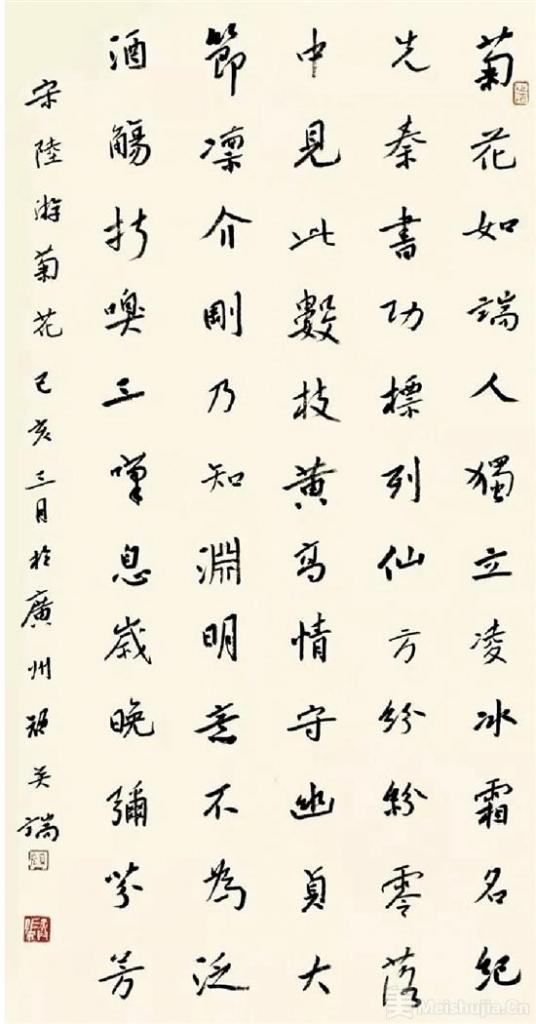 菊花如端人獨立凌冰霜名紀
先秦書功標列仙方紛紛零落
中見此數枝黃高情守幽貞大
節凜介剛乃知淵明意不為泛
酒觴折嗅三嘆息歲晚彌芬芳
宋陸游菊花己亥三月於廣州端
美 Meishujia.Cn